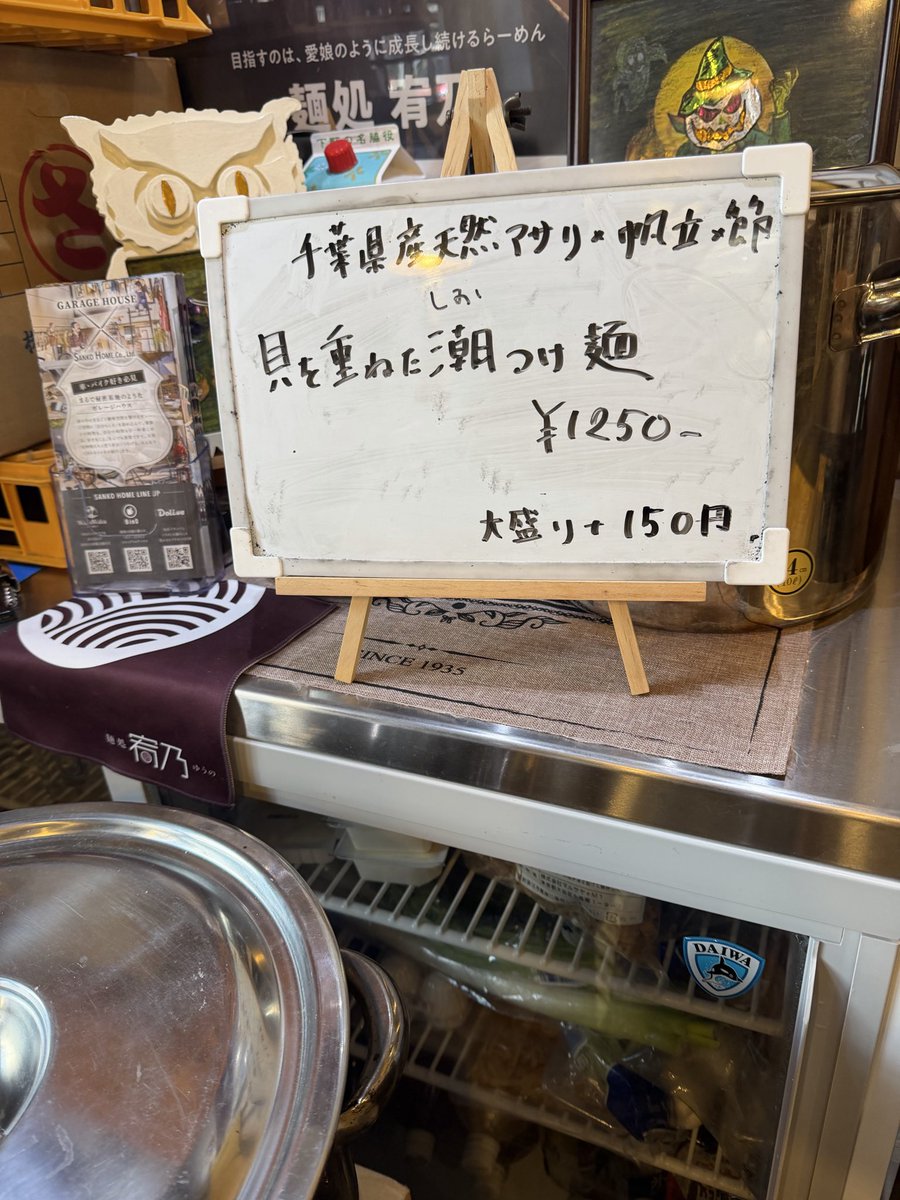 目指すのは、愛娘のように成長し続けるらーめん
麺処 宥乃
千葉県産天然アサリ×帆立×節
しお
貝を重ねた潮つけ麺
¥1250-
大盛り+150円
GARAGE HOUSE
SANKO HOME Co., Ltd
車・バイク好き必見
まるで秘密基地のような
ガレージハウス
SANKO HOME LINE UP
SINCE 1935
麺処 宥乃 ゆうの
DAIWA